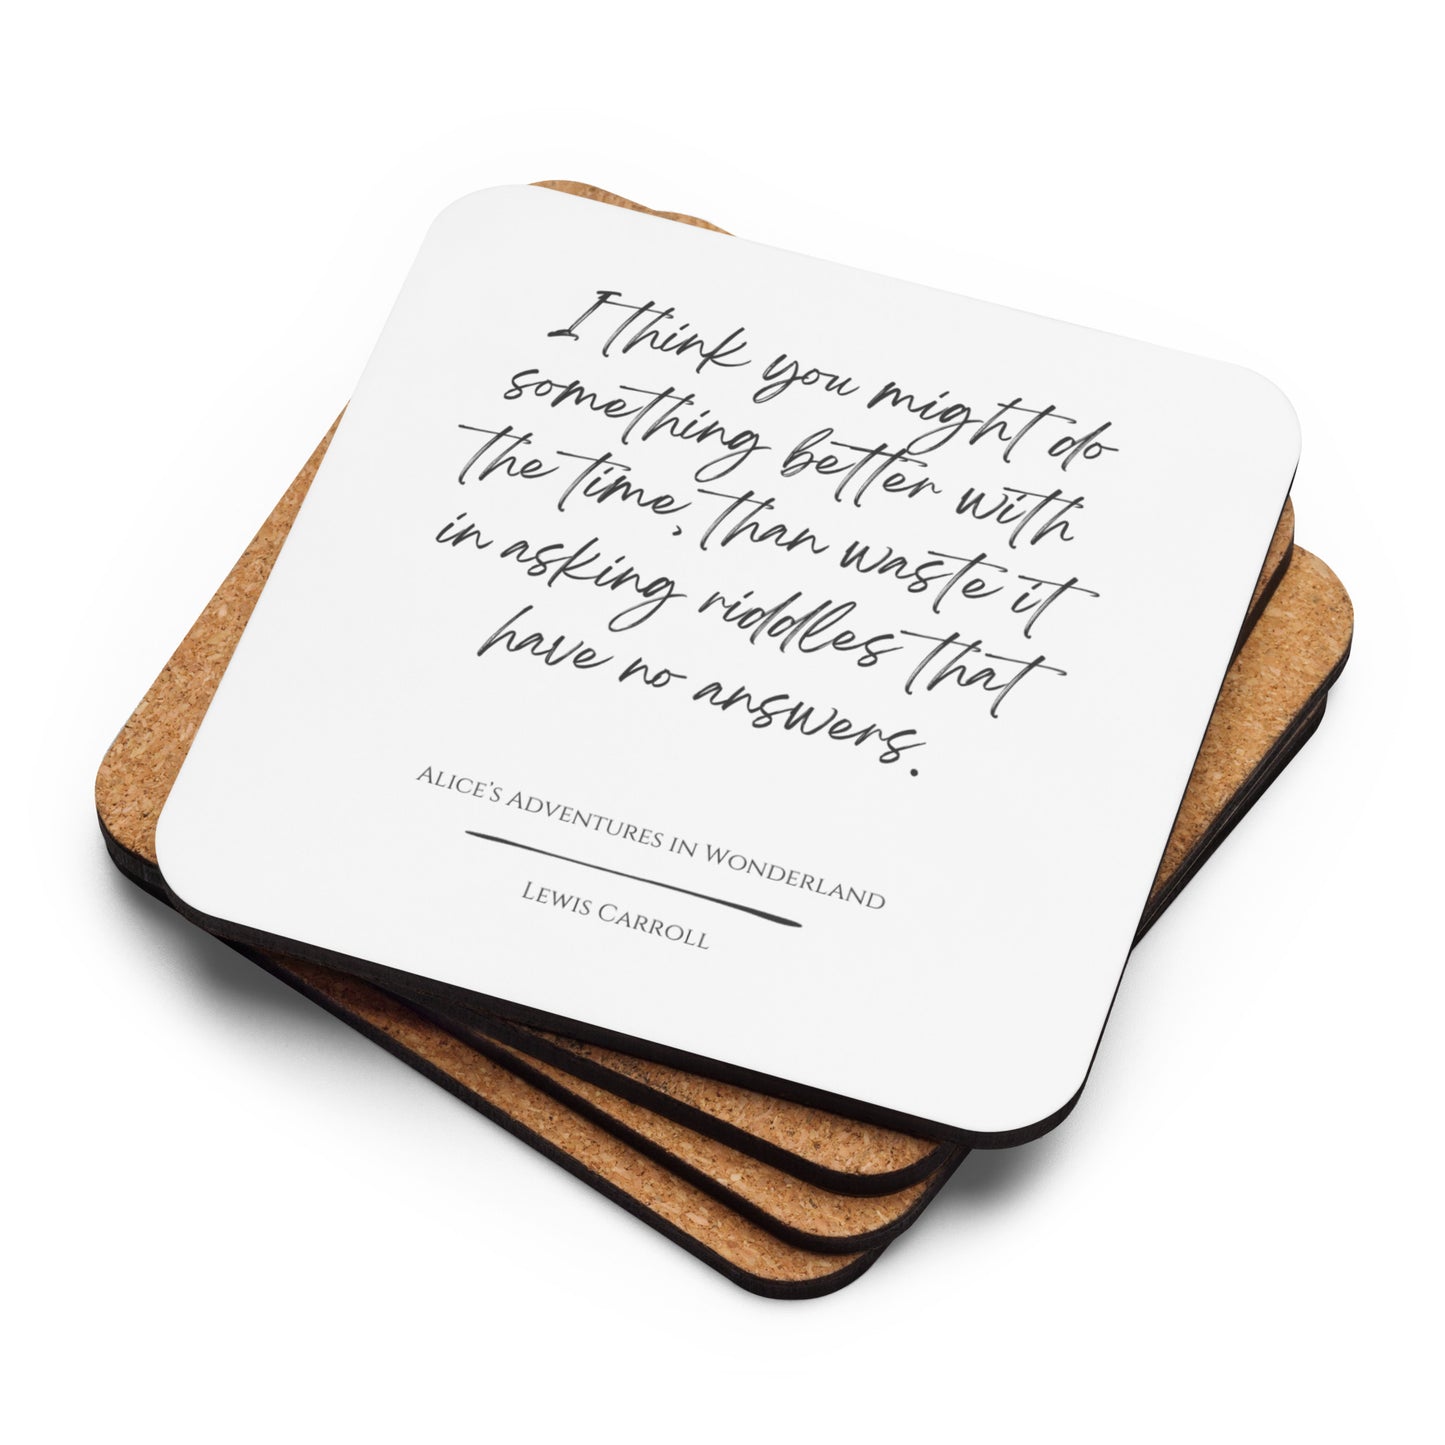 I think you might do
something better with
the time, than waste it
in asking riddles that
have no answers.
Alice's Adventures in Wonderland
Lewis Carroll